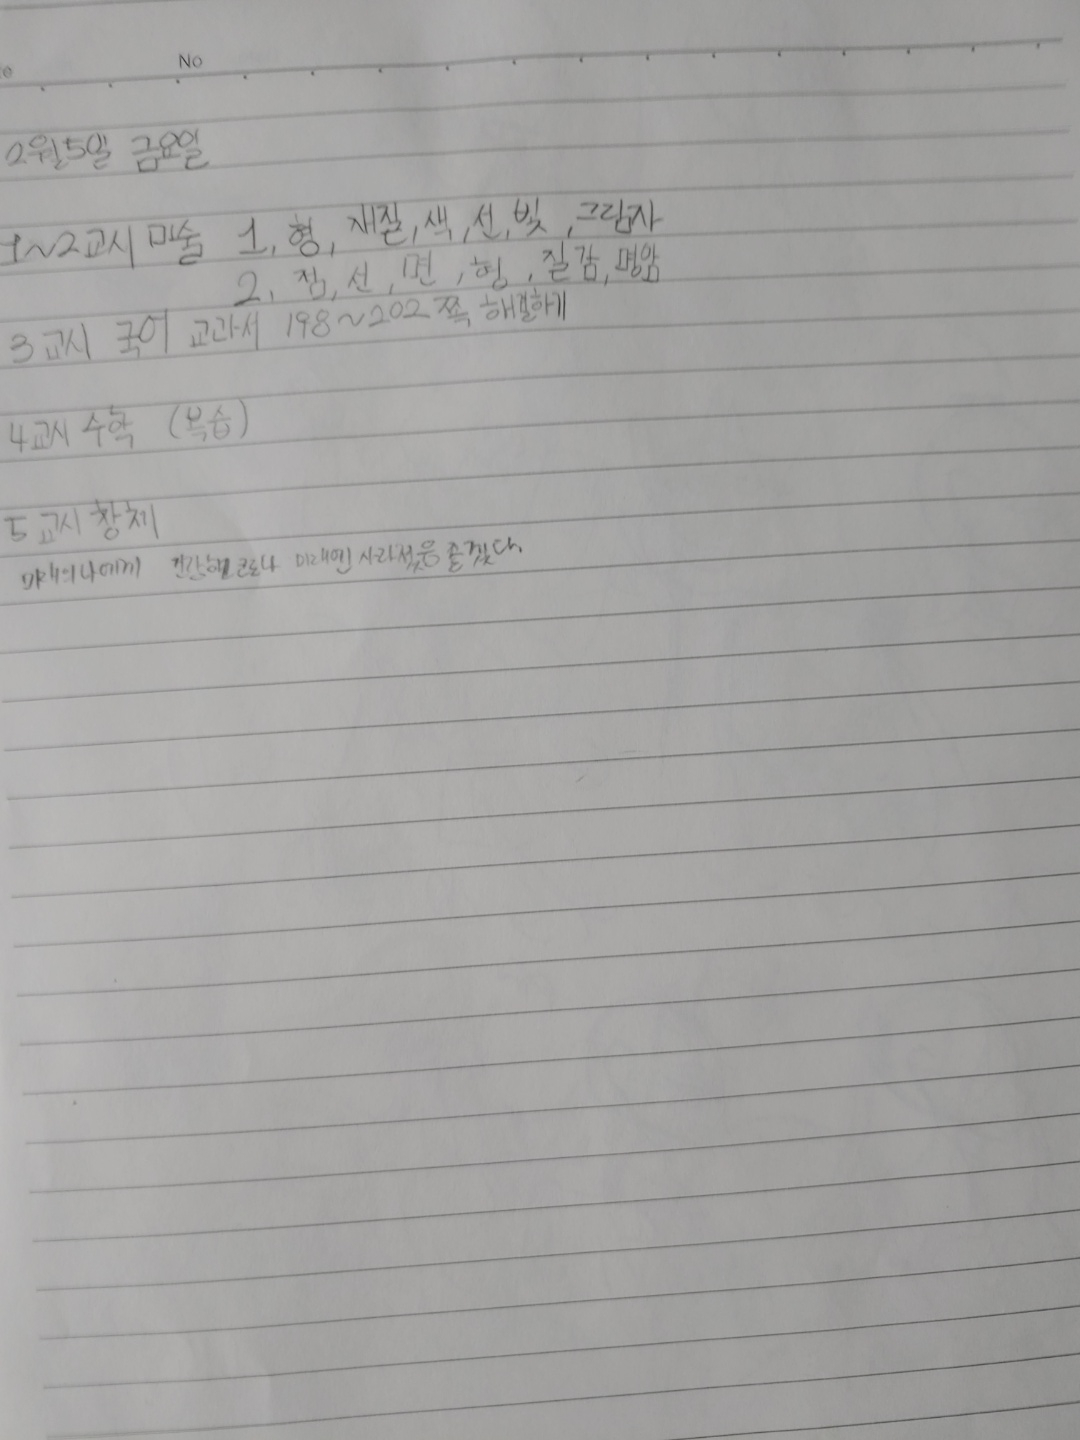 No
2월5일 금요일
1~2교시 미술 1, 형, 재질, 색, 선, 빛, 그림자
2, 점, 선, 면, 형, 질감, 명암
3교시 국어 교과서 198~202쪽 해결하기
4교시 수학 (복습)
5교시 창체
미래의나에게 코로나 미래엔 사라젔음 좋겠다.